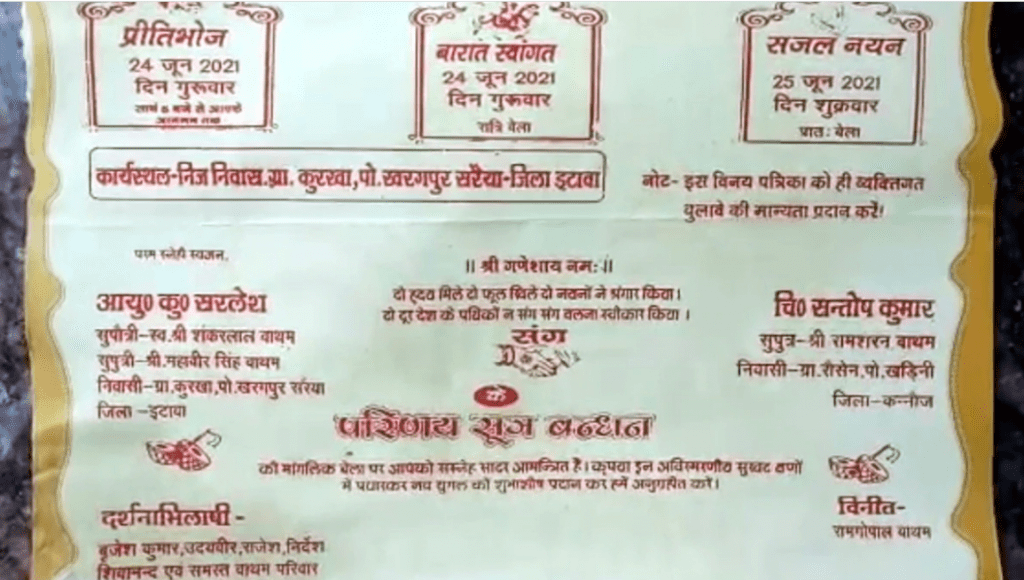 प्रीतिभोज
24 जून 2021
दिन गुरूवार
सायं 6 बजे से आपके
आगमन तक
बारात स्वागत
24 जून 2021
दिन गुरूवार
रात्रि बेला
सजल नयन
25 जून 2021
दिन शुक्रवार
प्रातः बेला
कार्यस्थल-निज निवास.ग्रा. कुरखा,पो.खरगपुर सरैया-जिला इटावा
नोट- इस विनय पत्रिका को ही व्यक्तिगत
बुलावे की मान्यता प्रदान करें!
परम स्नेही स्वजन,
॥ श्री गणेशाय नमः॥
दो हृदय मिले दो फूल खिले दो नयनों ने श्रंगार किया।
दो दूर देश के पथिकों न संग संग चलना स्वीकार किया ।
आयु० कु० सरलेश
सुपौत्री-स्व.श्री शंकरलाल बाथम
सुपुत्री-श्री.महावीर सिंह बाथम
निवासी-ग्रा.कुरखा,पो.खरगपुर सरैया
जिला -इटावा
संग
चि० सन्तोष कुमार
सुपुत्र-श्री रामशरन बाथम
निवासी-ग्रा.रौसेन,पो.खड़िनी
जिला-कन्नौज
के
परिणय सूत्र बन्धन
की मांगलिक बेला पर आपको सस्नेह सादर आमन्त्रित है। कृपया इन अविस्मरणीय सुखद क्षणों
में पधारकर नव युगल को शुभाशीष प्रदान कर हमें अनुग्रहीत करें।
दर्शनाभिलाषी -
बृजेश कुमार,उदयवीर,राजेश,निर्देश
शिवानन्द एवं समस्त बाथम परिवार
विनीत-
रामगोपाल बाथम